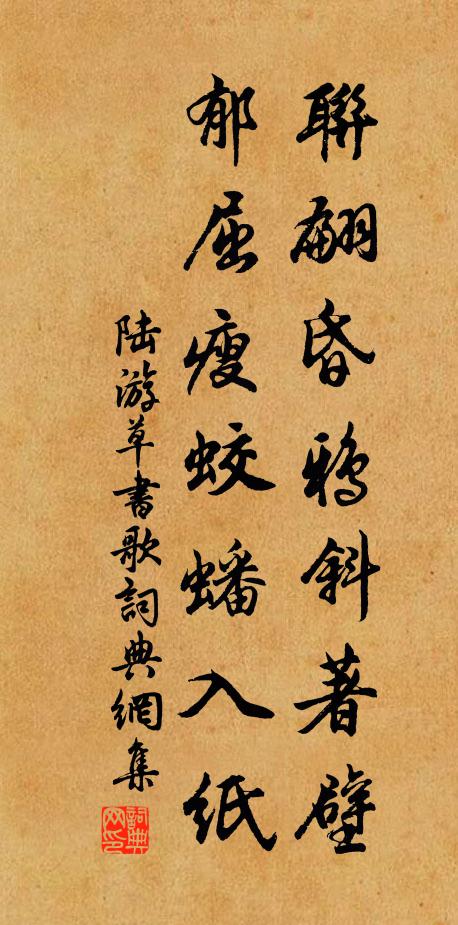 聯翩昏鴉斜著壁
郁屈瘦蛟蟠入紙
陆游草書歌詞典網集
詞典网印